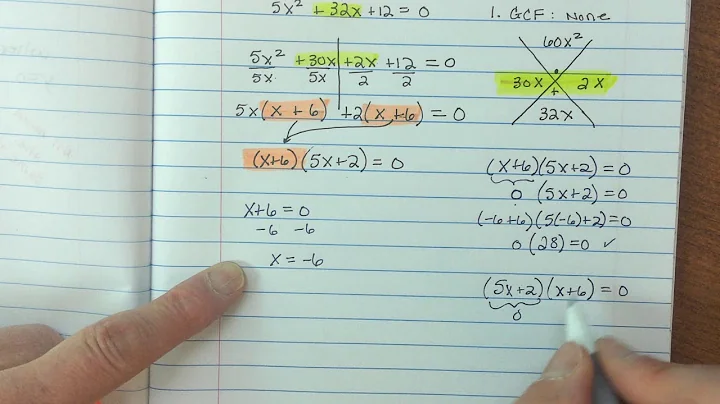 5x² + 32x + 12 = 0
5x² + 30x + 2x + 12 = 0
5x 5x 2 2
5x (x + 6) + 2 (x + 6) = 0
(x+6) (5x+2) = 0
x+6 = 0
-6 -6
x = -6
1. GCF: None
60x²
30x 2x
+
32x
(x+6) (5x+2) = 0
0 (5x+2) = 0
(-6+6) (5(-6)+2) = 0
0 (28) = 0 ✓
(5x+2) (x+6) = 0
0